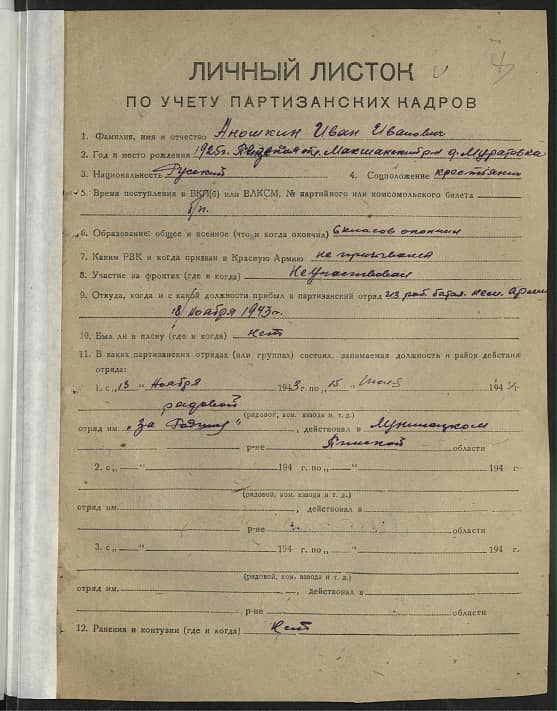 ЛИЧНЫЙ ЛИСТОК
ПО УЧЕТУ ПАРТИЗАНСКИХ КАДРОВ
1. Фамилия, имя и отчество Аношкин Иван Иванович
2. Год и место рождения 1925г. обл. Мокшанский р-н д. Муратовка
3. Национальность Русский 4. Соцположение крестьянин
5. Время поступления в ВКП(б) или ВЛКСМ, № партийного или комсомольского билета
б/п.
6. Образование: общее и военное (что и когда окончил) 6 классов окончил
7. Каким РВК и когда призван в Красную Армию не призывался
8. Участие на фронтах (где и когда) Не участвовал
9. Откуда, когда и с какой должности прибыл в партизанский отряд из раб. батал. нем. армии
18 Ноября 1943г.
10. Был ли в плену (где и когда) нет
11. В каких партизанских отрядах (или группах) состоял, занимаемая должность и район действия
отряда:
1. с „ " Ноября 1943 г. по „15 " Июля 1944 г.
рядовой
(рядовой, ком. взвода и т. д.)
отряд им. „За Родину", действовал в Лунинецком
р-не Пинской области
2. с „ " 194 г. по „ " 194 г.
(рядовой, ком. взвода и т. д.)
отряд им. , действовал в
р-не области
3. с „ " 194 г. по „ " 194 г.
(рядовой, ком. взвода и т. д.)
отряд им. , действовал в
р-не области
12. Ранения и контузии (где и когда) нет